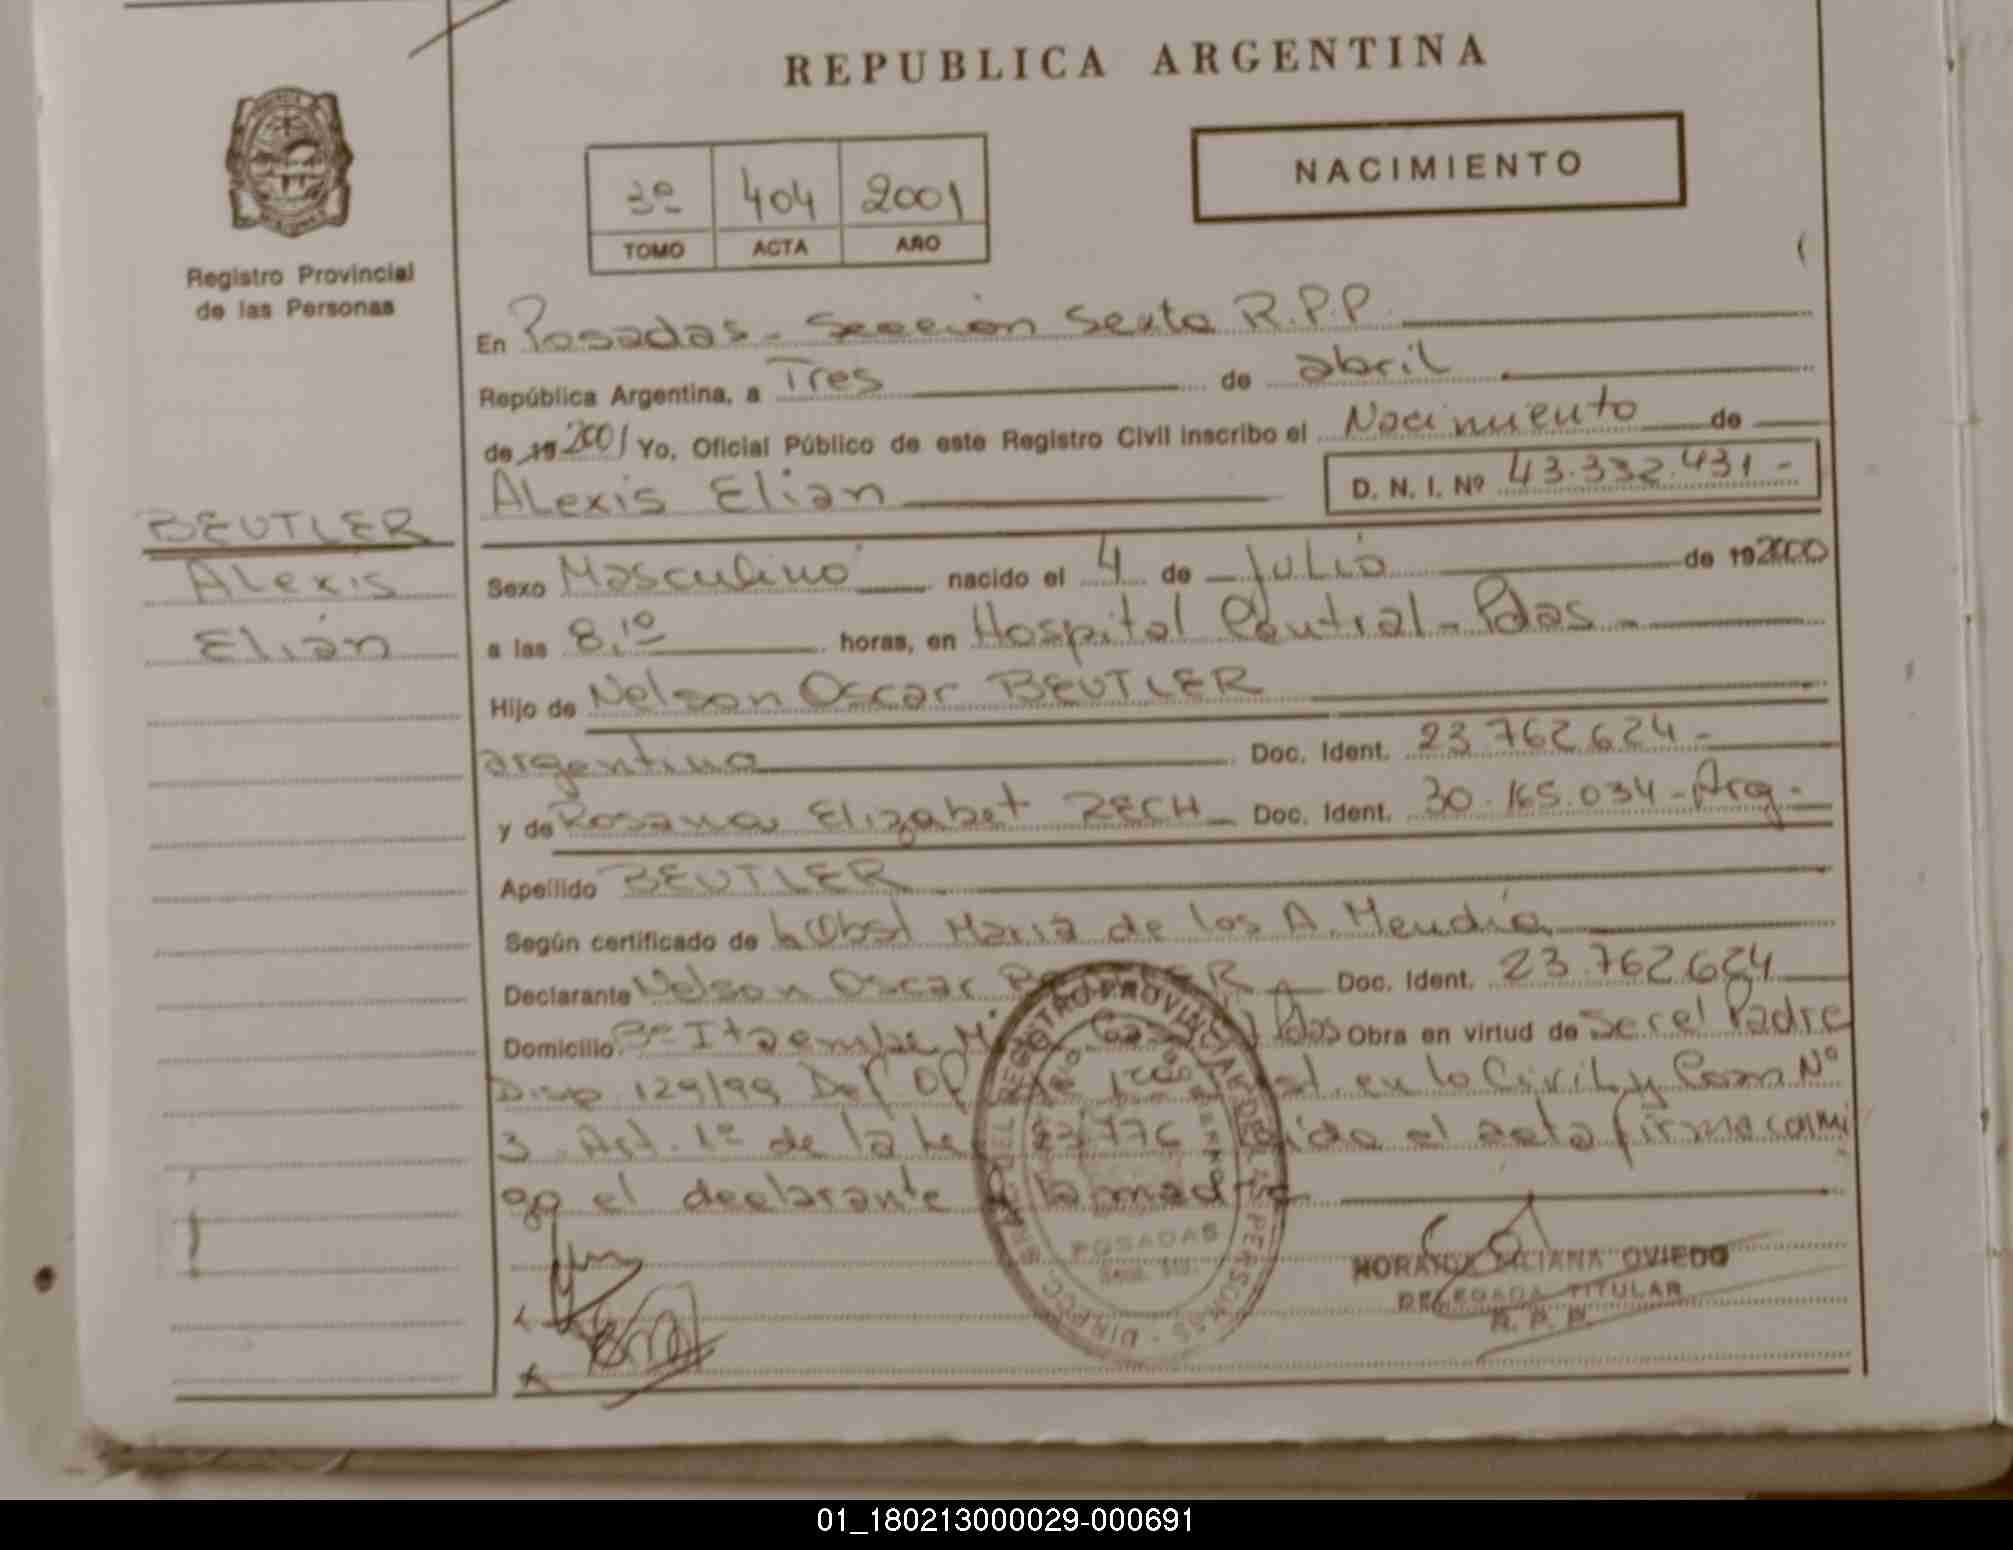 REPUBLICA ARGENTINA
NACIMIENTO
3º 404 2001
TOMO ACTA AÑO
Registro Provincial
de las Personas
En Posadas - Sección Sexta R.P.P.
República Argentina, a Tres de abril
de 19 2001 Yo, Oficial Público de este Registro Civil inscribo el Nacimiento de
Alexis Elian D. N. I. Nº 43.332.431 -
BEUTLER
Alexis
Elian
Sexo Masculino nacido el 4 de Julio de 192000
a las 8,1º horas, en Hospital Central - Pdas -
Hijo de Nelson Oscar BEUTLER
argentino Doc. Ident. 23.762.624 -
y de Rosana Elizabet ZECH Doc. Ident. 30.165.034 - Arg -
Apellido BEUTLER
Según certificado de Obst Maria de los A. Mendia
Declarante Nelson Oscar BEUTLER Doc. Ident. 23.762.624
Domicilio Bº Itaembe Pdas Obra en virtud de Ser el Padre
Disp 129/99 Def Of en lo Civil y Com Nº
3. Art. 1º de la el acta firma conmi
go el declarante la madre
REGISTRO PROVINCIAL DE LAS PERSONAS
POSADAS
LILIANA OVIEDO
DELEGADA TITULAR
R. P. P.
01_180213000029-000691